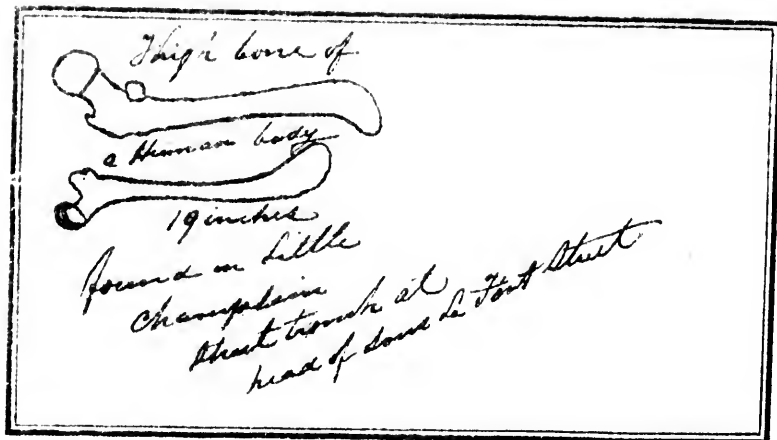 Thigh bone of
a Human body
19 inches
found in Little
Champlain
Street trench at
head of Sous Le Fort Street